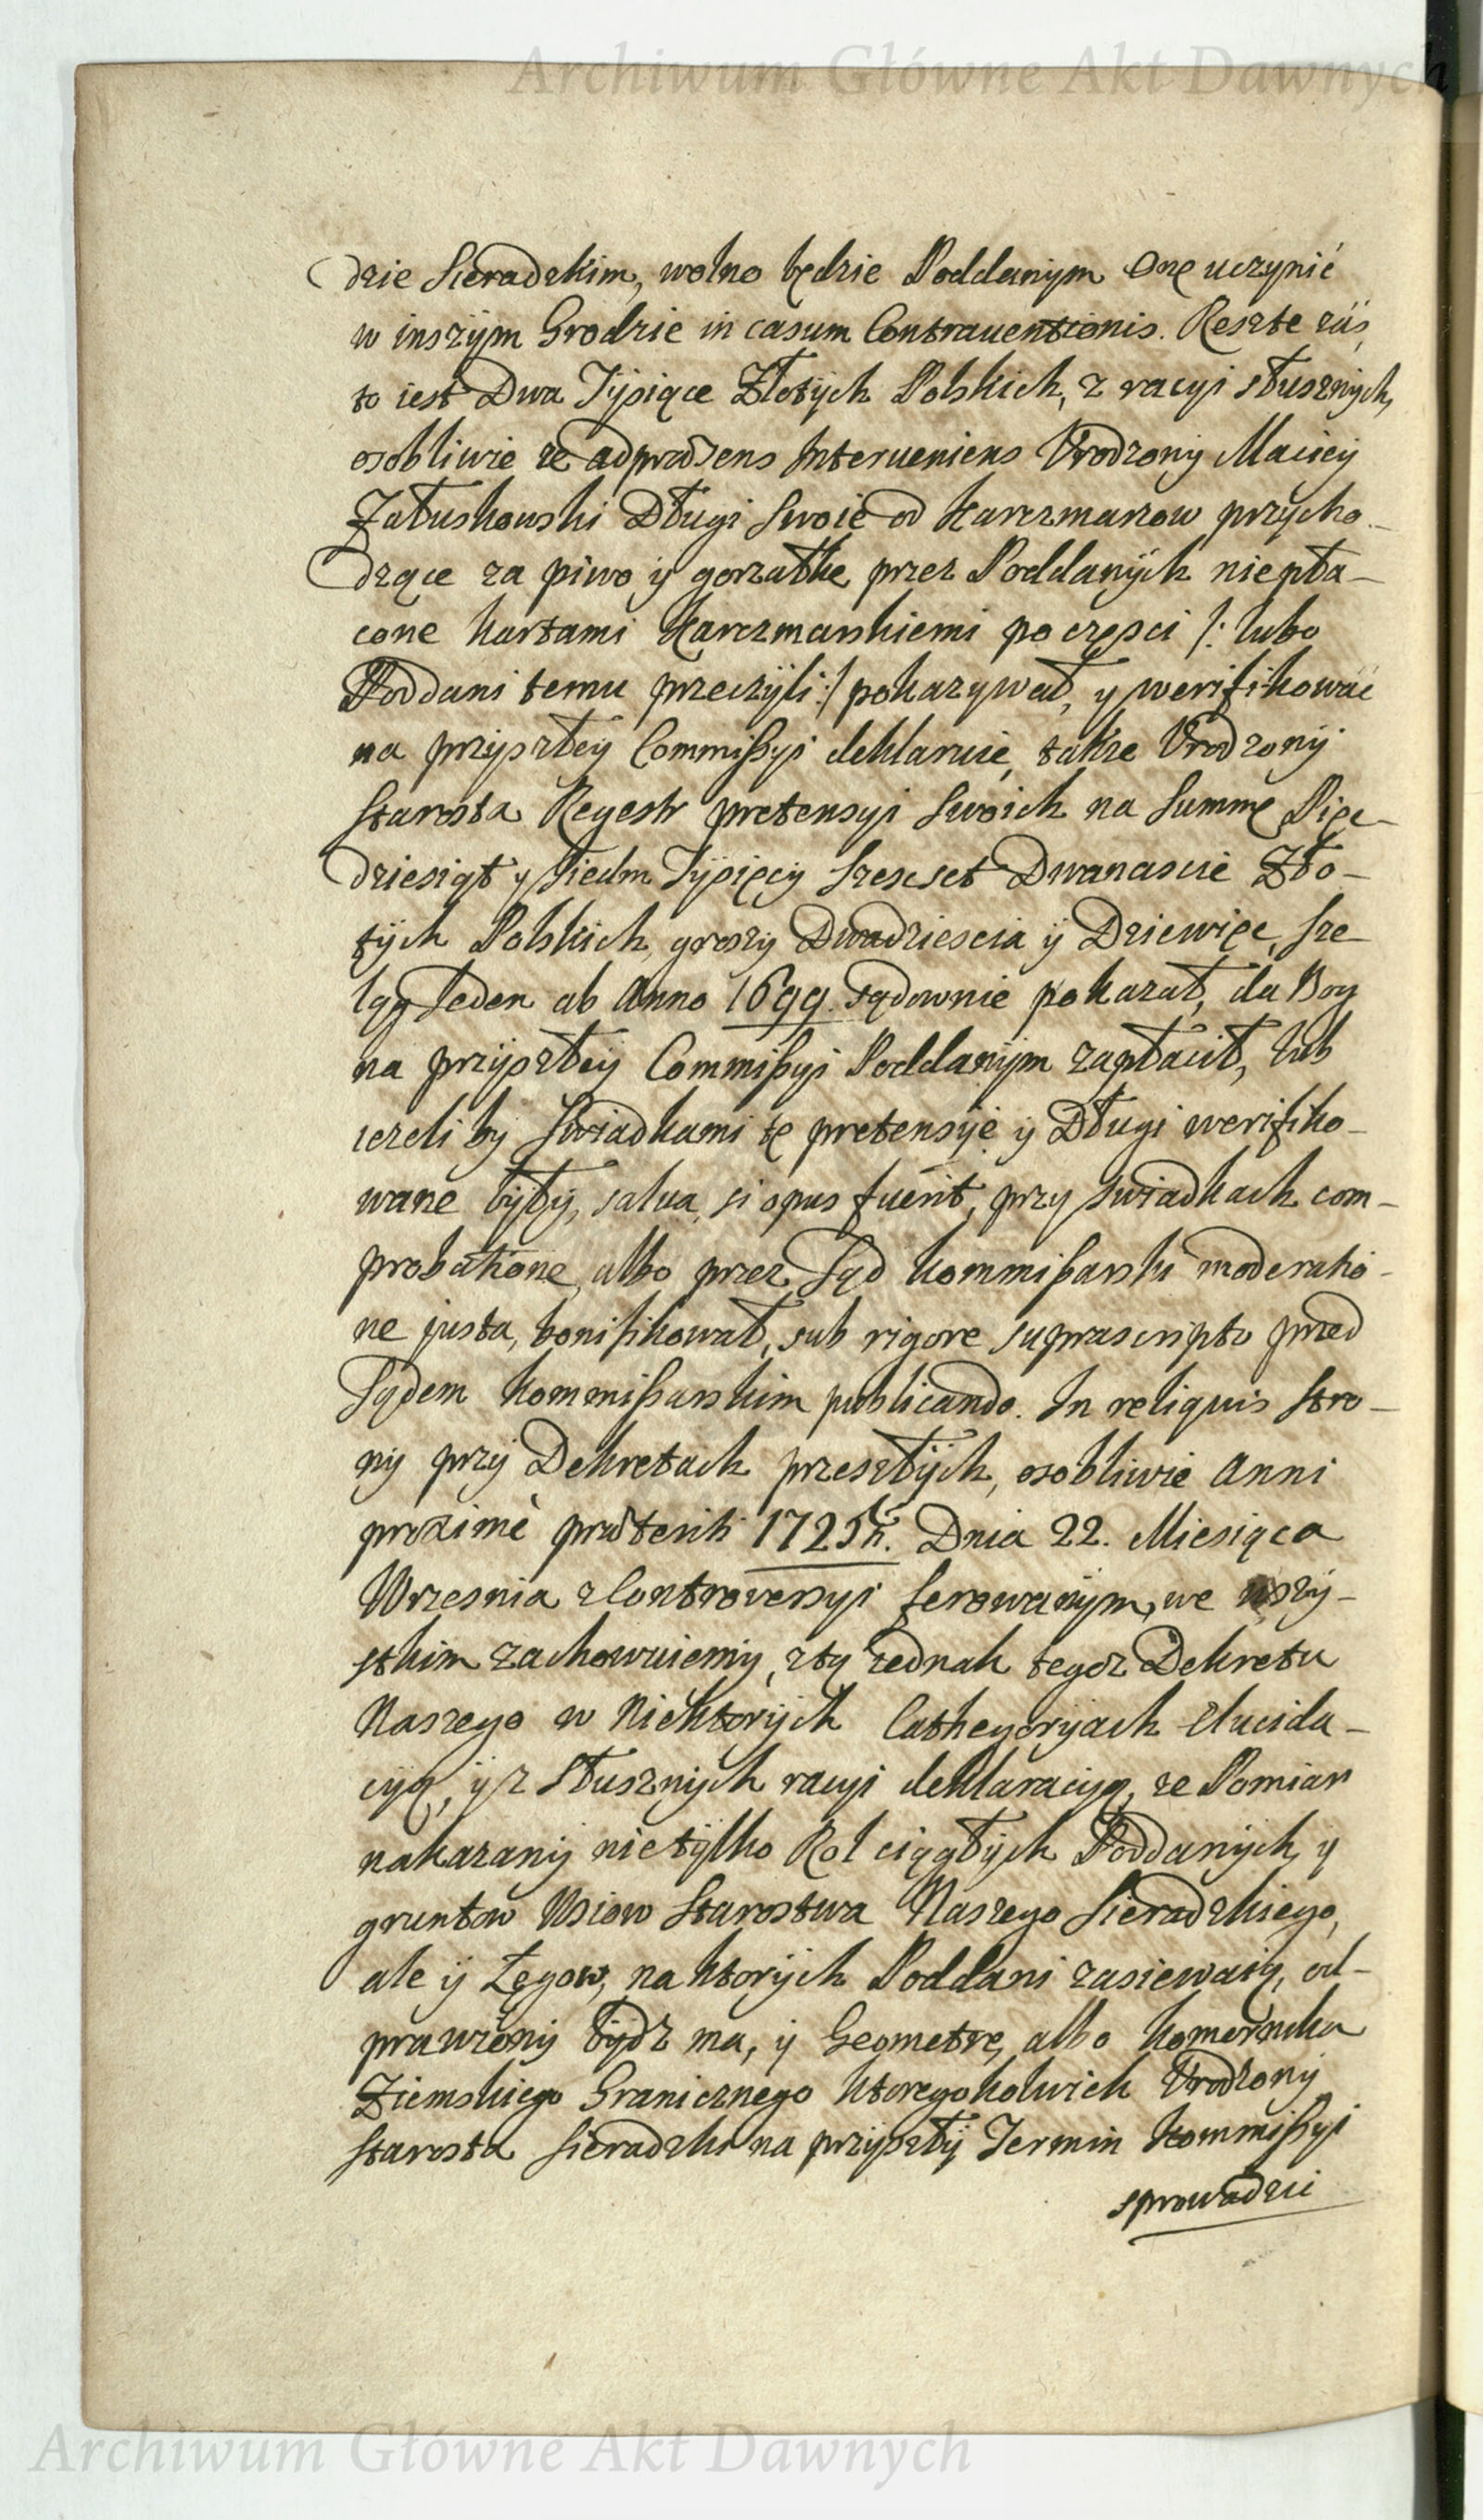 Archiwum Główne Akt Dawnych
dzie Sieradzkim, wolno będzie Poddanym Onę uczynić
w inszym Grodzie in casum Contrauentionis. Reszte zaś,
to iest Dwa Tysiące Złotych Polskich, z racyi słusznych,
osobliwie że ad præsens Interueniens Vrodzony Maciey
Załuskowski Długi Swoie od Karczmarzow przycho-
dzące za piwo y gorzałkę przez Poddanych niepła-
cone kartami Karczmarskiemi po częsci /: lubo
Poddani temu przeczyli :/ pokazywał, y werifikować
na przyszłey Commissyi deklaruie, także Vrodzony
Starosta Regestr pretensyi Swoich na Summę Pięc-
dziesiąt y Siedm Tysięcy Szescset Dwanascie Zło-
tych Polskich, groszy Dwadziescia y Dziewięc, Sze-
ląg Jeden ab Anno 1699. sądownie pokazał, da Bog
na przyszłey Commissyi Poddanym zapłacił, lub
ieżeli by Swiadkami te pretensye y Długi werifiko-
wane były, salua, si opus fuerit, przy swiadkach com-
probatione, albo przez Sąd Kommissarski moderatio-
ne justa, bonifikował, sub rigore suprascripto przed
Sądem Kommissarskim publicando. In reliquis Stro-
ny przy Dekretach przeszłych, osobliwie Anni
proximè præteriti 1725tz. Dnia 22. Miesiąca
Wrzesnia z Controversyi ferowanym, we wszy-
stkim zachowuiemy, z tą iednak tegoz Dekretu
Naszego w Niektorych Cathegoryach elucida-
cyą, y z Słusznych racyi deklaracyą, ze Pomiar
nakazany nie tylko Rol ciągłych Poddanych, y
gruntow Wsiow Starostwa Naszego Sieradzkiego,
ale y Łęgow, na ktorych Poddani zasiewaią, od-
prawiony bydz ma, y Geometrę, albo Komornika
Ziemskiego Granicznego ktoregokolwiek Vrodzony
Starosta Sieradzki na przyszły Termin Kommissyi
sprowadzi
Archiwum Główne Akt Dawnych